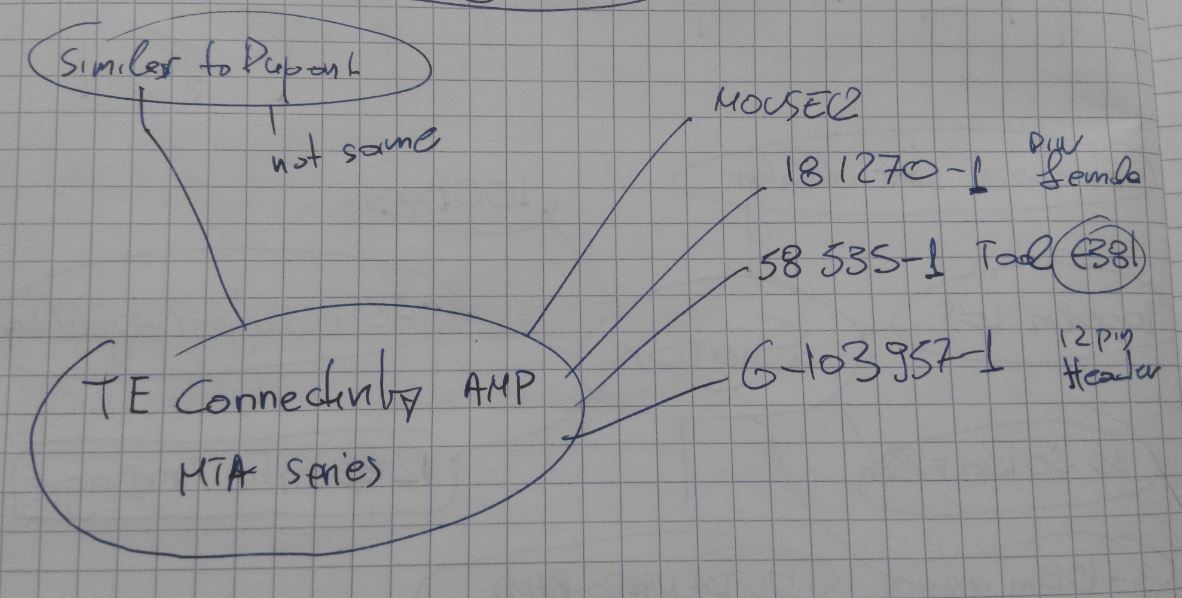 Similar to Dupont
not same
MOUSER
181270-1 PIN female
58 535-1 Tool €381
6-103957-1 12 pin Header
TE Connectivity AMP
MTA series